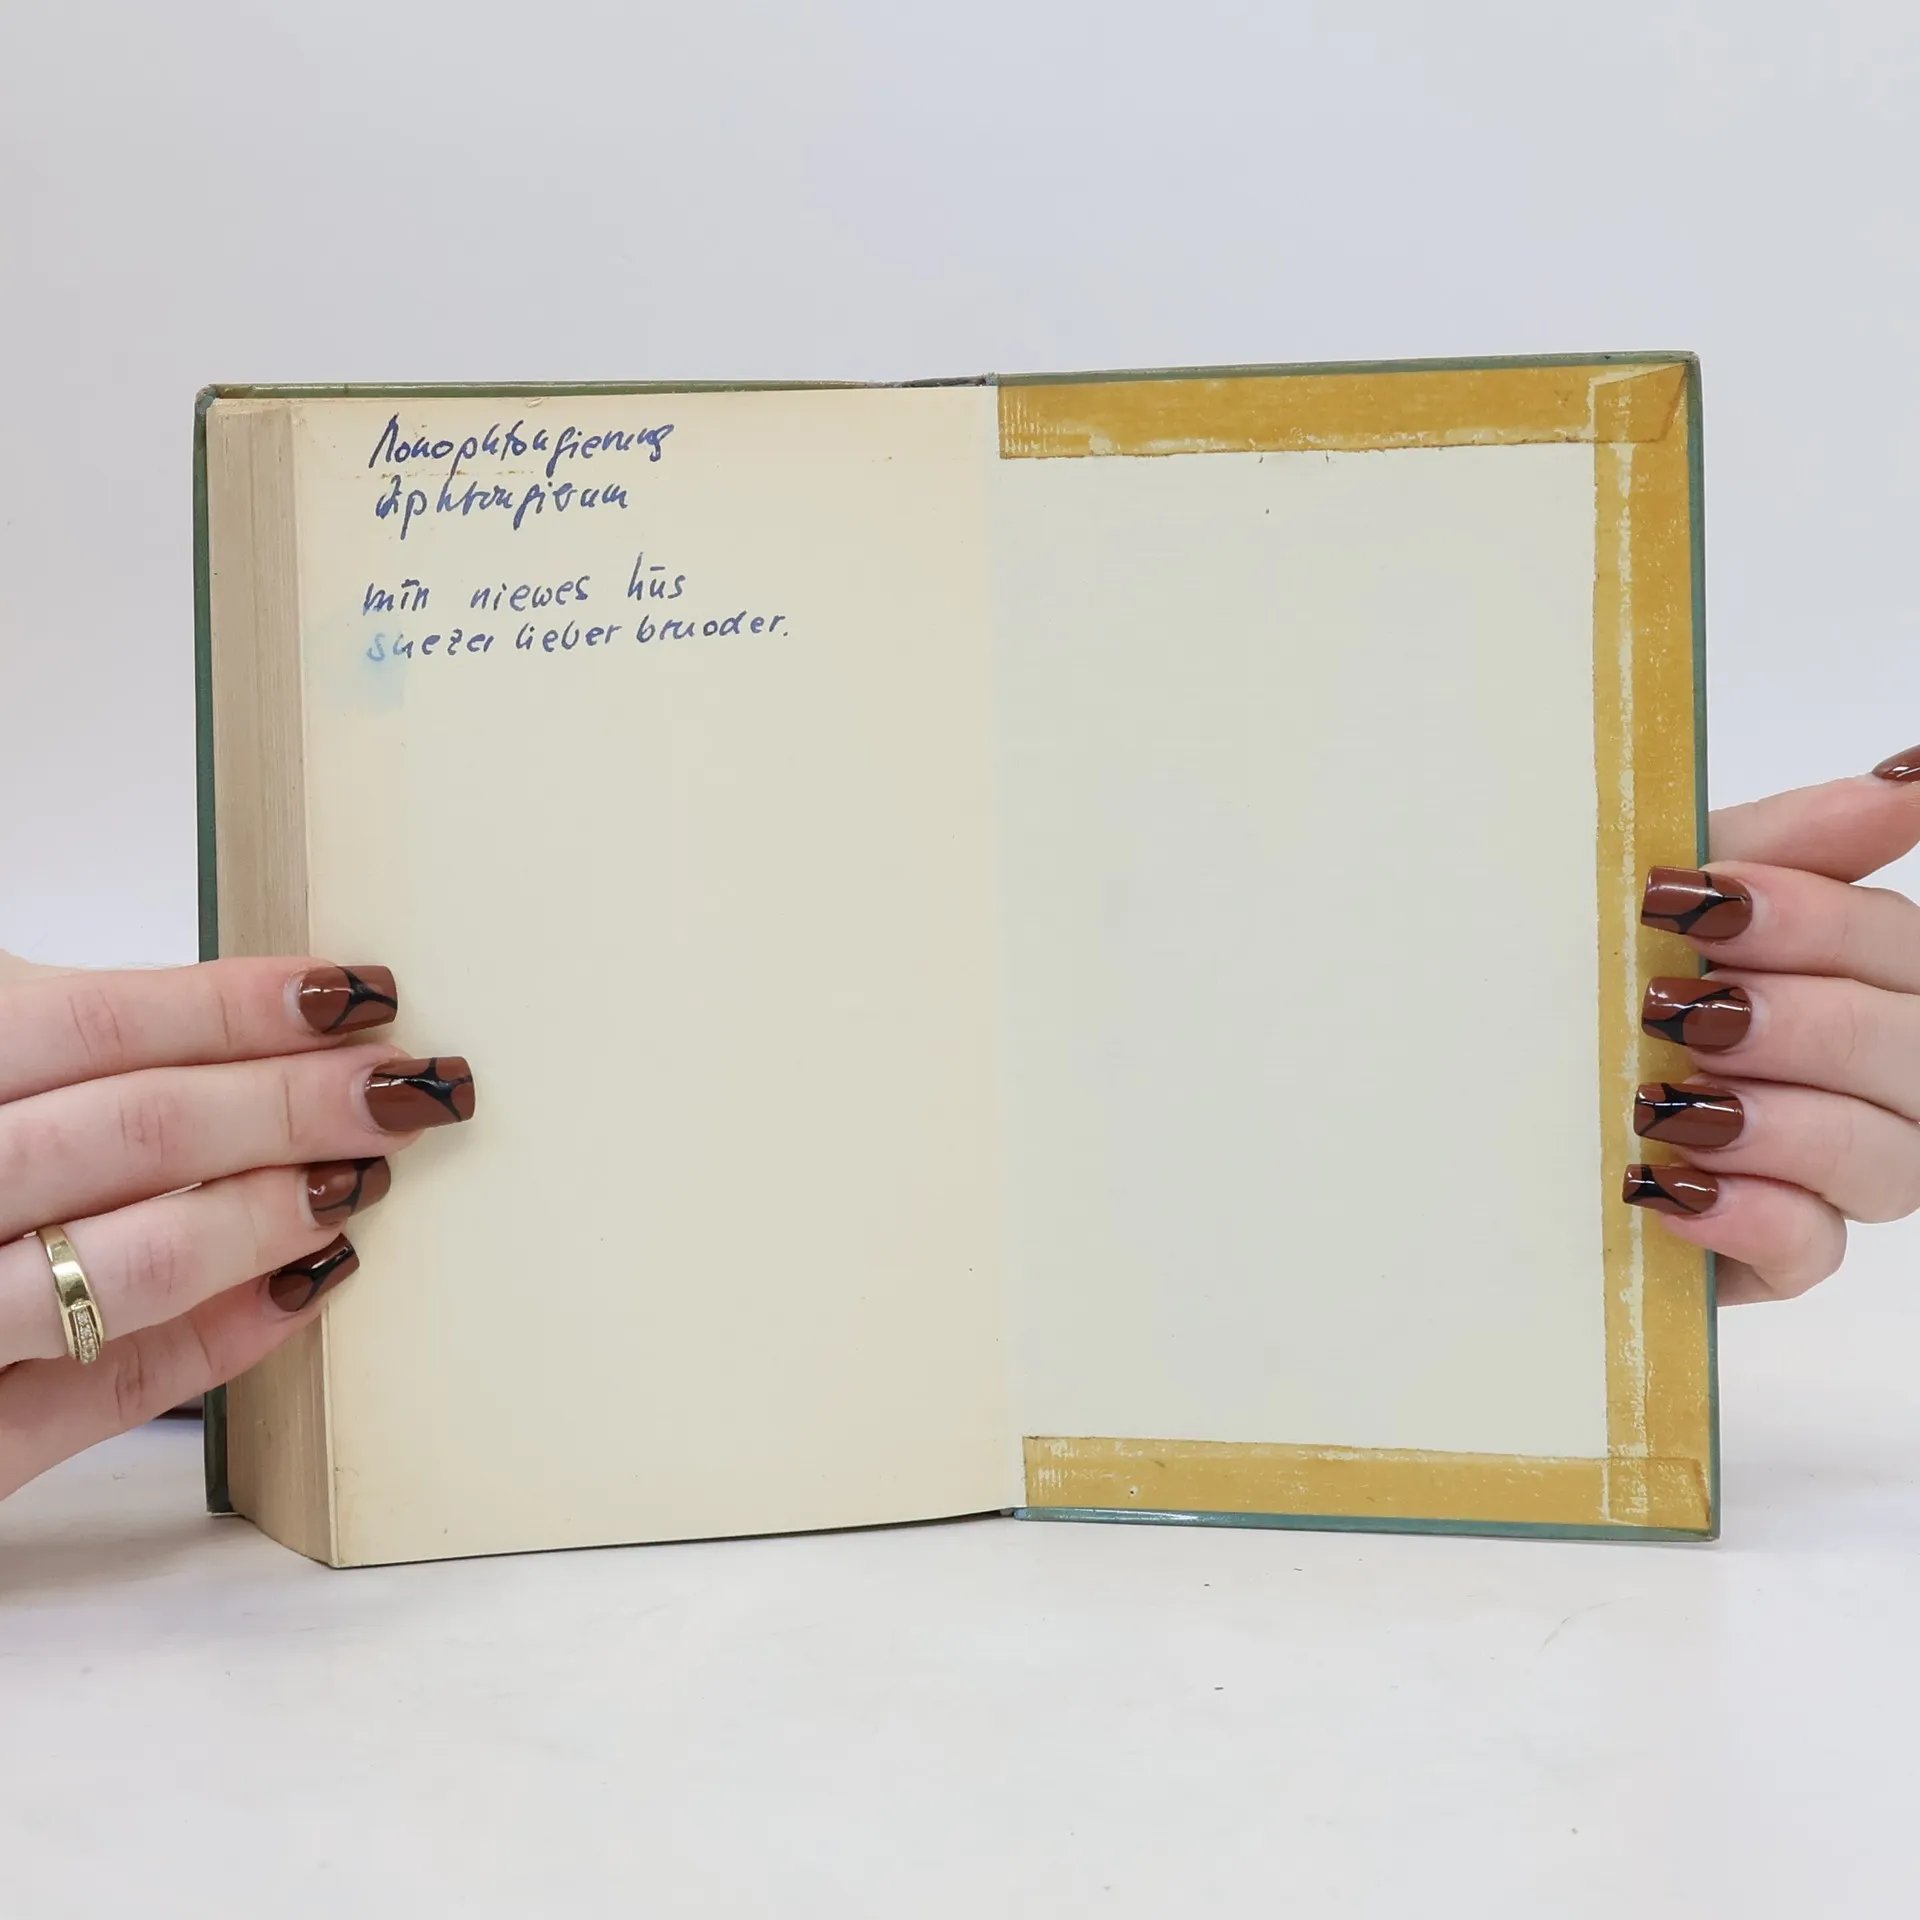 Monophtongierung
Diphtongierung
mīn niewes hūs
suezer lieber bruoder.